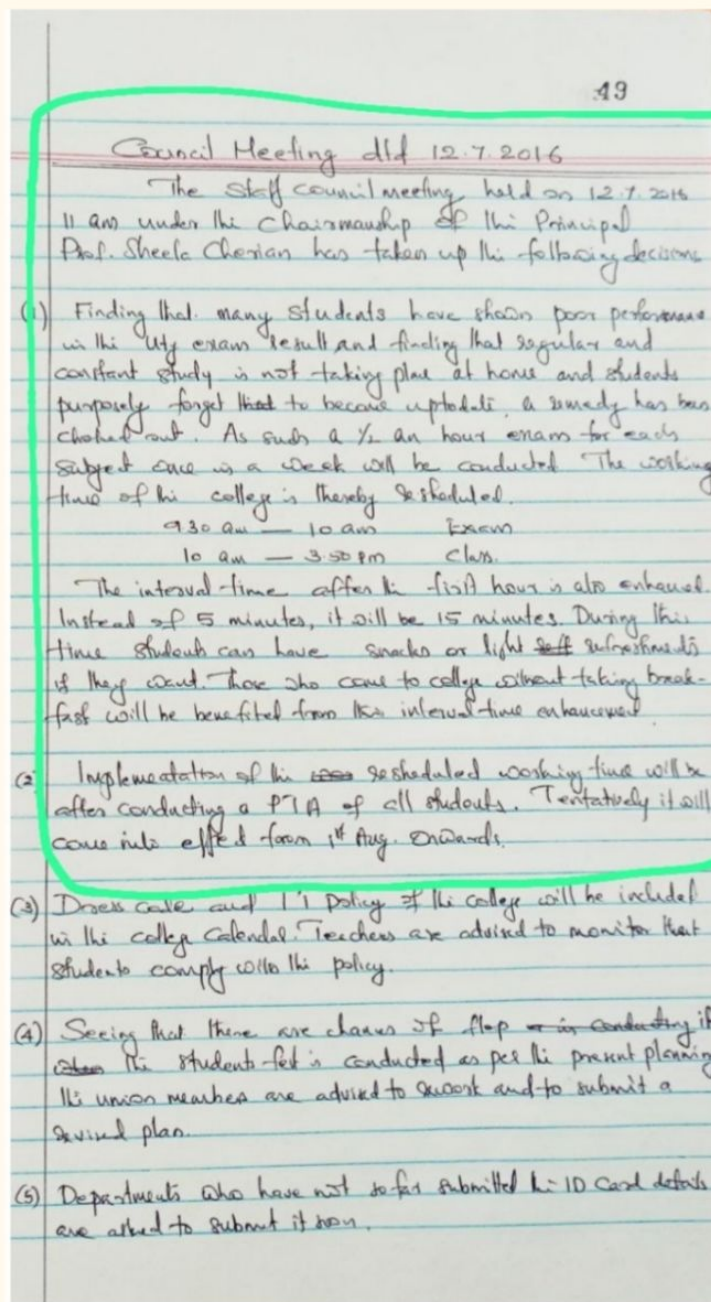 49
Council Meeting dtd 12.7.2016
The Staff council meeting held on 12.7.2016
11 am under the Chairmanship of the Principal
Prof. Sheela Cherian has taken up the following decisions
(1) Finding that many students have shown poor performance
in the Uty exam result and finding that regular and
constant study is not taking place at home and students
purposely forget to become uptodate, a remedy has been
chalked out. As such a ½ an hour exam for each
subject once in a week will be conducted The working
time of the college is thereby resheduled.
9 30 am — 10 am Exam
10 am — 3.50 pm Class.
The interval time after the first hour is also enhanced.
Instead of 5 minutes, it will be 15 minutes. During this
time students can have snacks or light refreshments
if they want. Those who come to college without taking break-
fast will be benefited from this interval time enhancement
(2) Implementation of the resheduled working time will be
after conducting a PTA of all students. Tentatively it will
come into effect from 1st Aug. onwards.
(3) Dress code and policy of the college will be included
in the college Calendar. Teachers are advised to monitor that
students comply with the policy.
(4) Seeing that there are chances of flop if
the students fest is conducted as per the present planning
the union members are advised to rework and to submit a
revised plan.
(5) Departments who have not so far submitted the ID Card details
are asked to submit it soon.